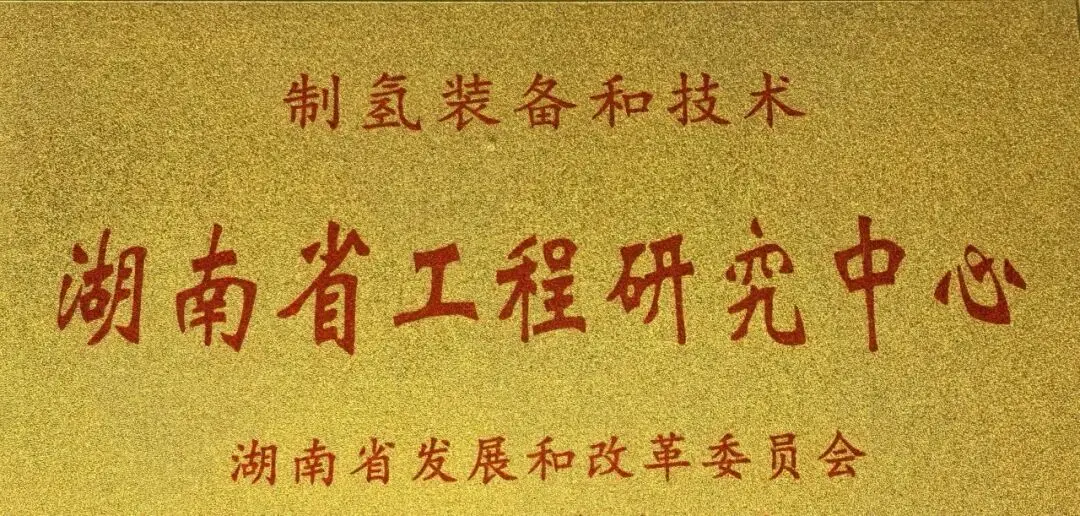 制氢装备和技术
湖南省工程研究中心
湖南省发展和改革委员会